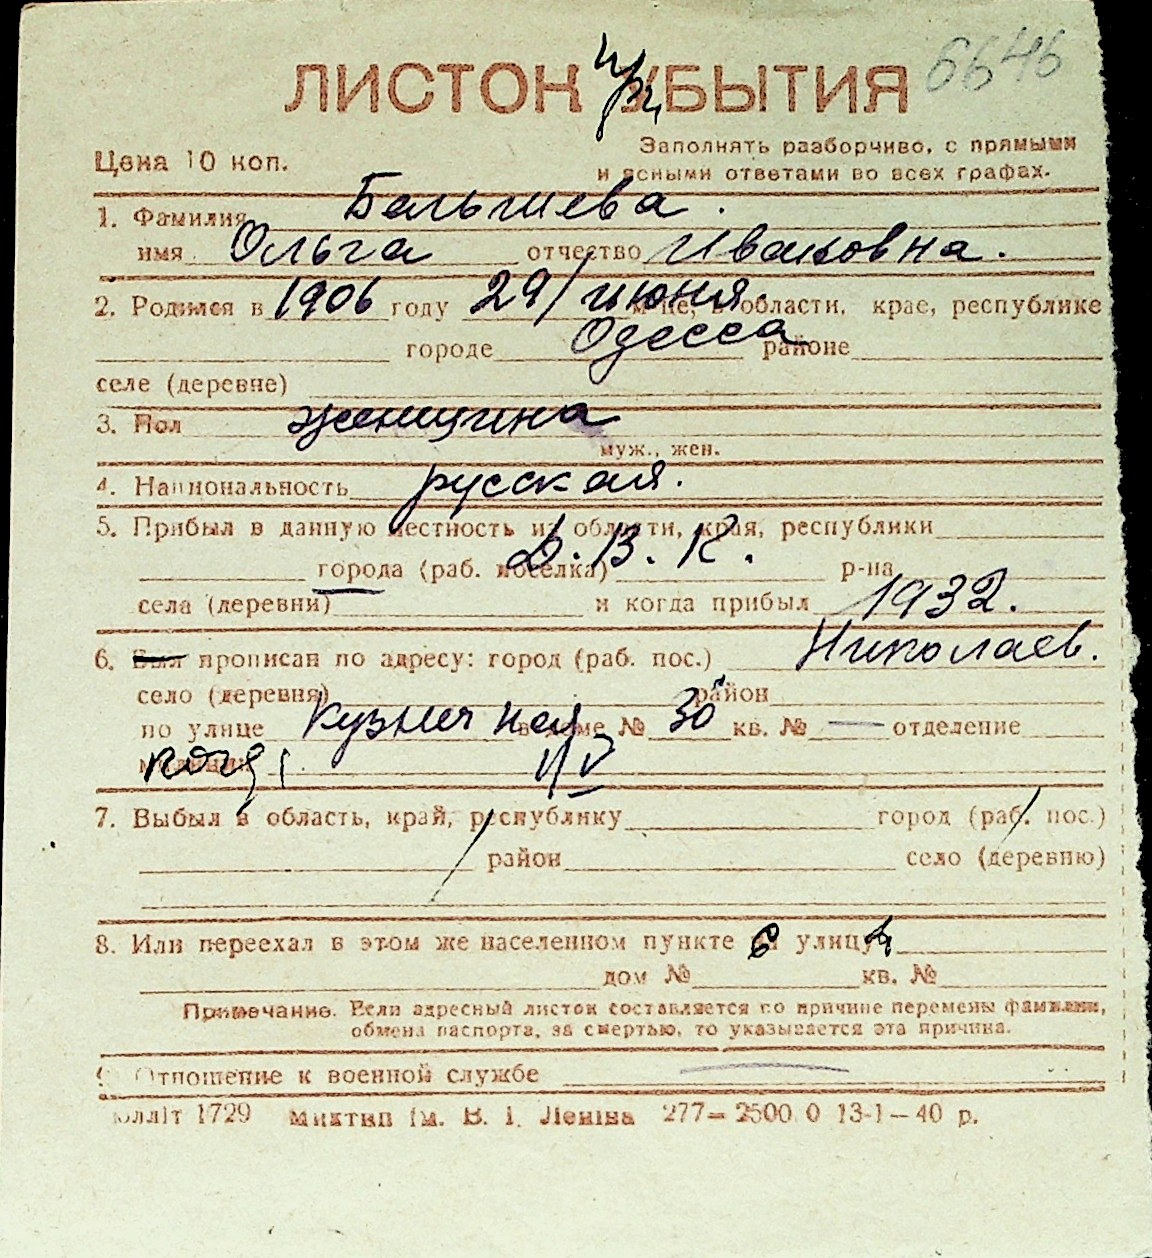 ЛИСТОК при УБЫТИЯ 6646
Цена 10 коп. Заполнять разборчиво, с прямыми
и ясными ответами во всех графах.
1. Фамилия Балышева.
имя Ольга отчество Ивановна.
2. Родился в 1906 году 29/июня. м-це, в области, крае, республике
городе Одесса районе
селе (деревне)
3. Пол женщина
муж., жен.
4. Национальность русская.
5. Прибыл в данную местность из области, края, республики
города (раб. поселка) Д.В.К. р-на
села (деревни) и когда прибыл 1932.
6. Был прописан по адресу: город (раб. пос.) Николаев.
село (деревня) район
по улице Кузнечная в доме № 30 кв. № — отделение
милиции
7. Выбыл в область, край, республику город (раб. пос.)
район село (деревню)
8. Или переехал в этом же населенном пункте улицу
дом № кв. №
Примечание. Если адресный листок составляется по причине перемены фамилии,
обмена паспорта, за смертью, то указывается эта причина.
9. Отношение к военной службе
1729 Миктип ім. В. І. Леніна 277—2500 0 13-1—40 р.